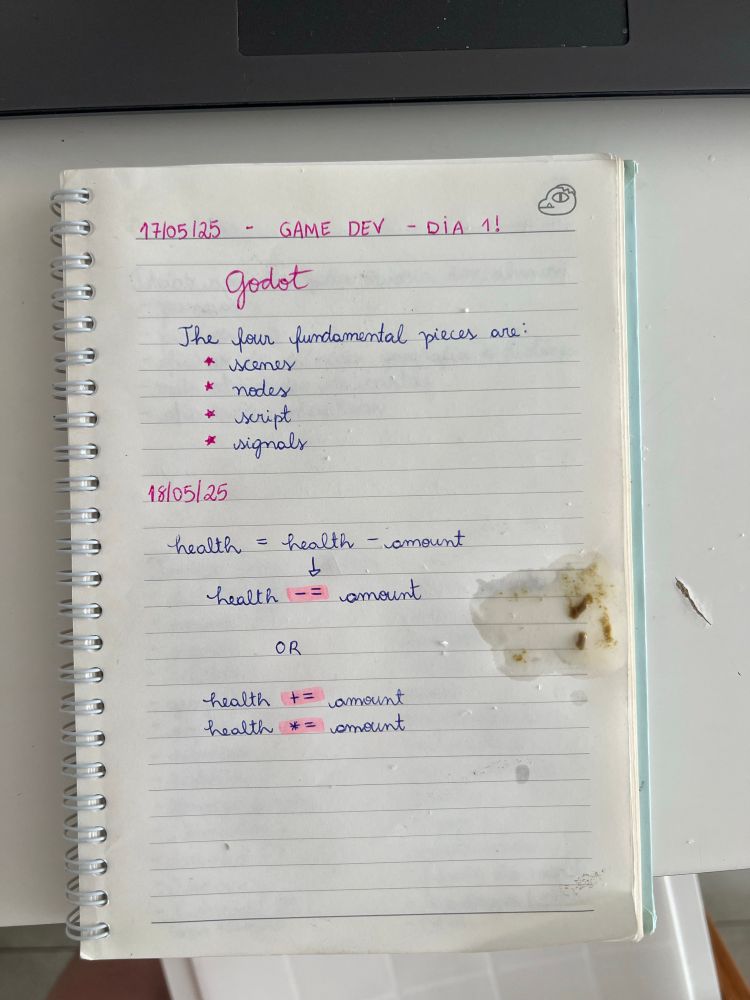 17/05/25 - GAME DEV - DIA 1!
Godot
The four fundamental pieces are:
★ scenes
★ nodes
★ script
★ signals
18/05/25
health = health - amount
↓
health -= amount
OR
health += amount
health *= amount